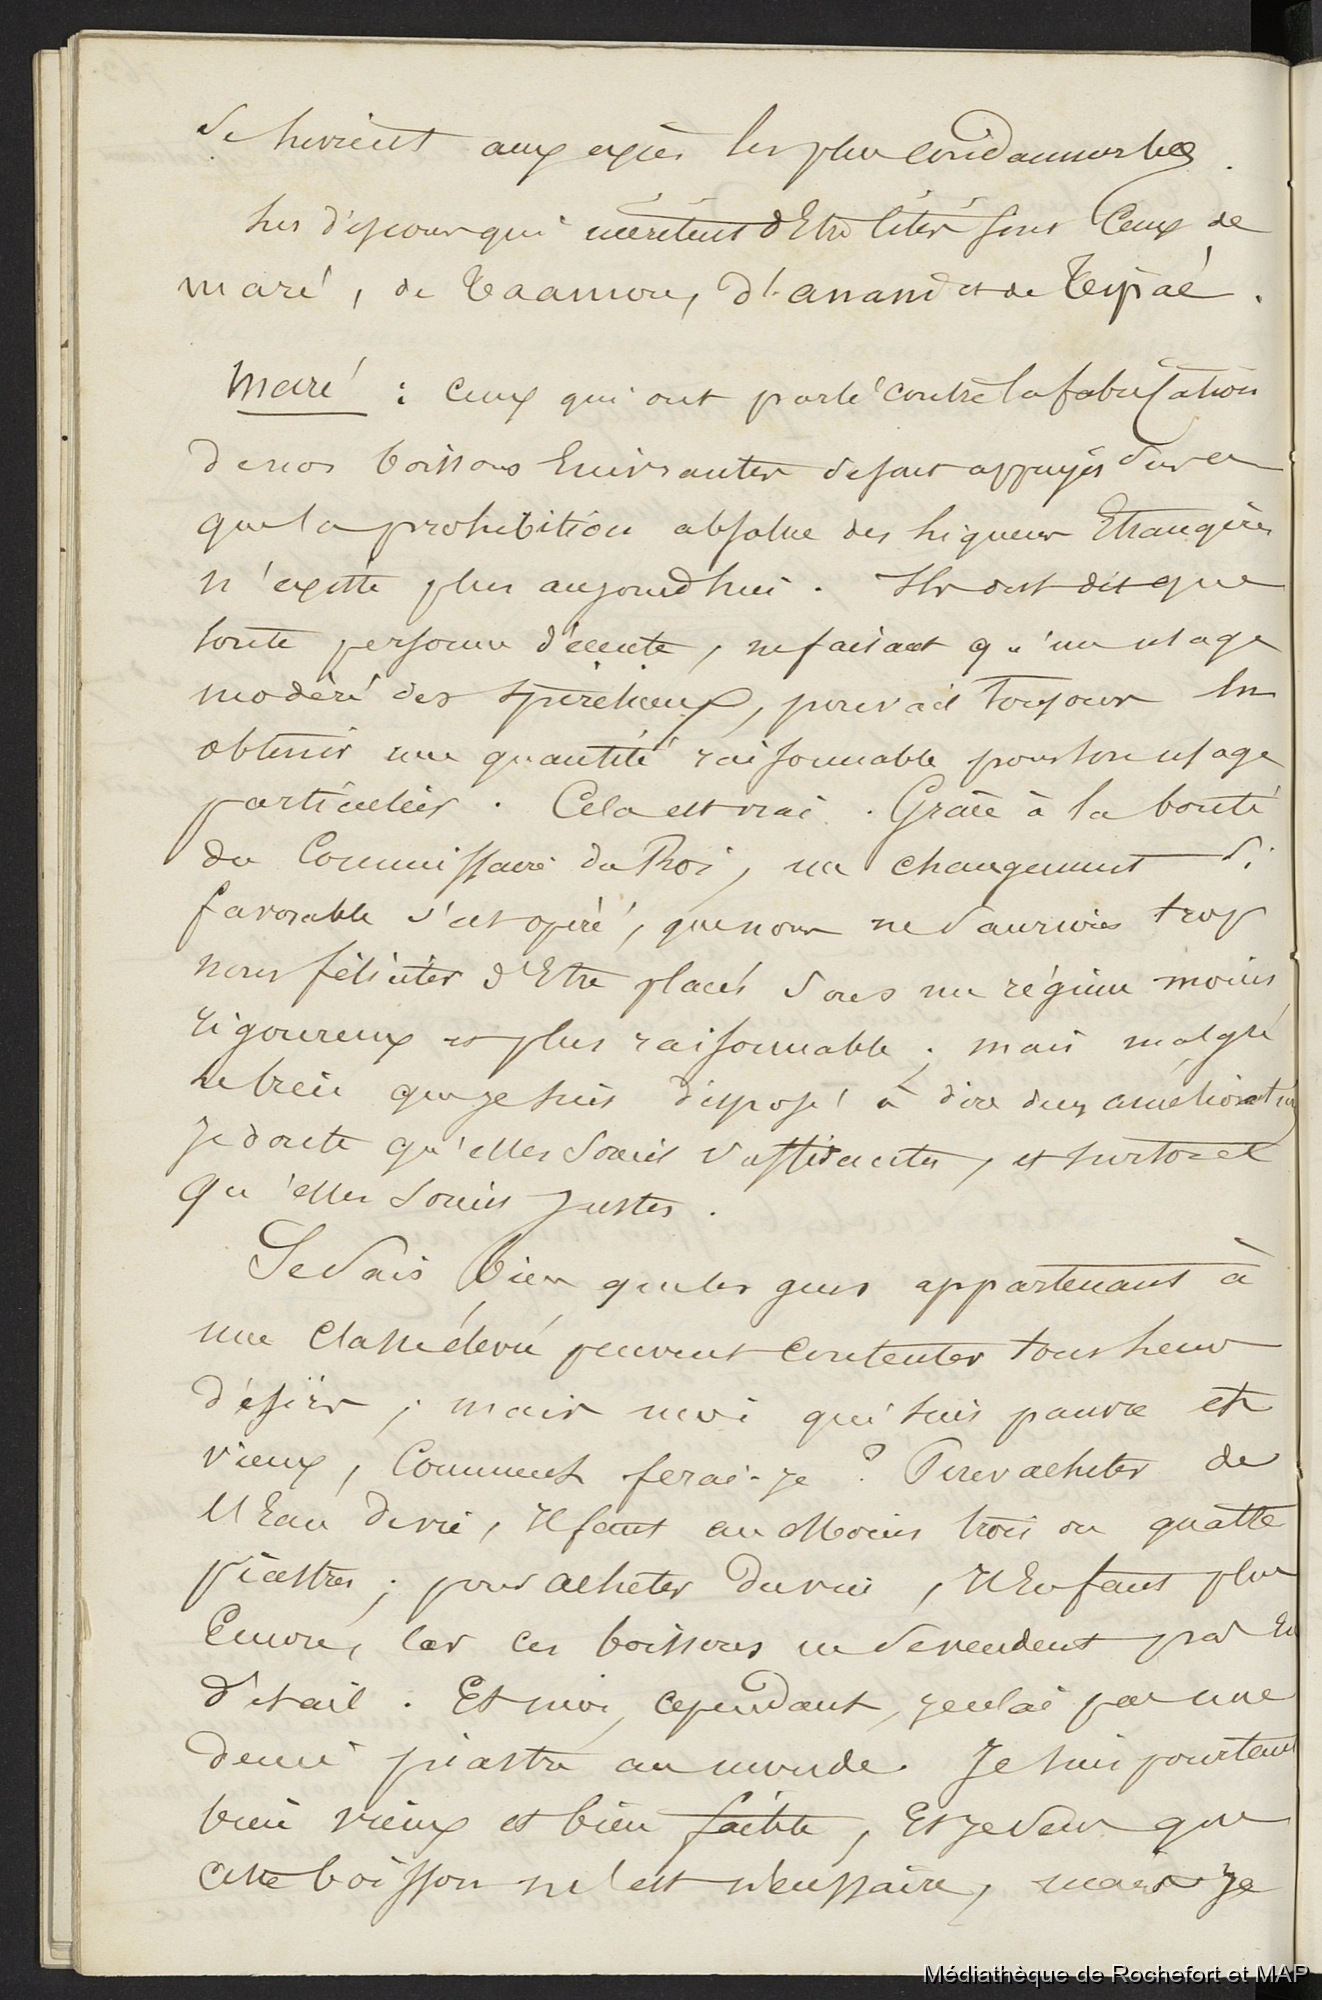 se livrent aux excès les plus condamnables.
Les discours qui méritent d'Etre Cités sont Ceux de
maré, de Taamou, d'anani et de Teipaé.
Maré : Ceux qui ont parlé contre la fabrication
de nos boissons Enivrantes se sont appuyés sur ce
que la prohibition absolue des liqueurs Etrangères
n'existe plus aujourd'hui. Ils ont dit que
toute personne décente, ne faisant qu'un usage
modéré des spiritueux, pouvait toujours En
obtenir une quantité raisonnable pour son usage
particulier. Cela est vrai. Grâce à la bonté
du Commissaire du Roi, un changement si
favorable s'est opéré, que nous ne saurions trop
nous féliciter d'Etre placés sous un régime moins
rigoureux et plus raisonnable ; mais malgré
le bien que je suis disposé à dire des améliorations
je doute qu'elles soient suffisantes, et surtout
qu'elles soient justes.
Je sais bien que les gens appartenant à
une classe élevée peuvent contenter tous leurs
désirs ; mais moi qui suis pauvre et
vieux, Comment ferai-je ? Pour acheter de
l'Eau de vie, il faut au Moins trois ou quatre
piastres ; pour acheter du vin, il En faut plus
Encore, Car ces boissons ne se vendent pas En
détail. Et moi, cependant, je n'ai pas une
demi piastre au monde. Je suis pourtant
bien vieux et bien faible, Et je sens que
cette boisson m'est nécessaire, mais je
Médiathèque de Rochefort et MAP